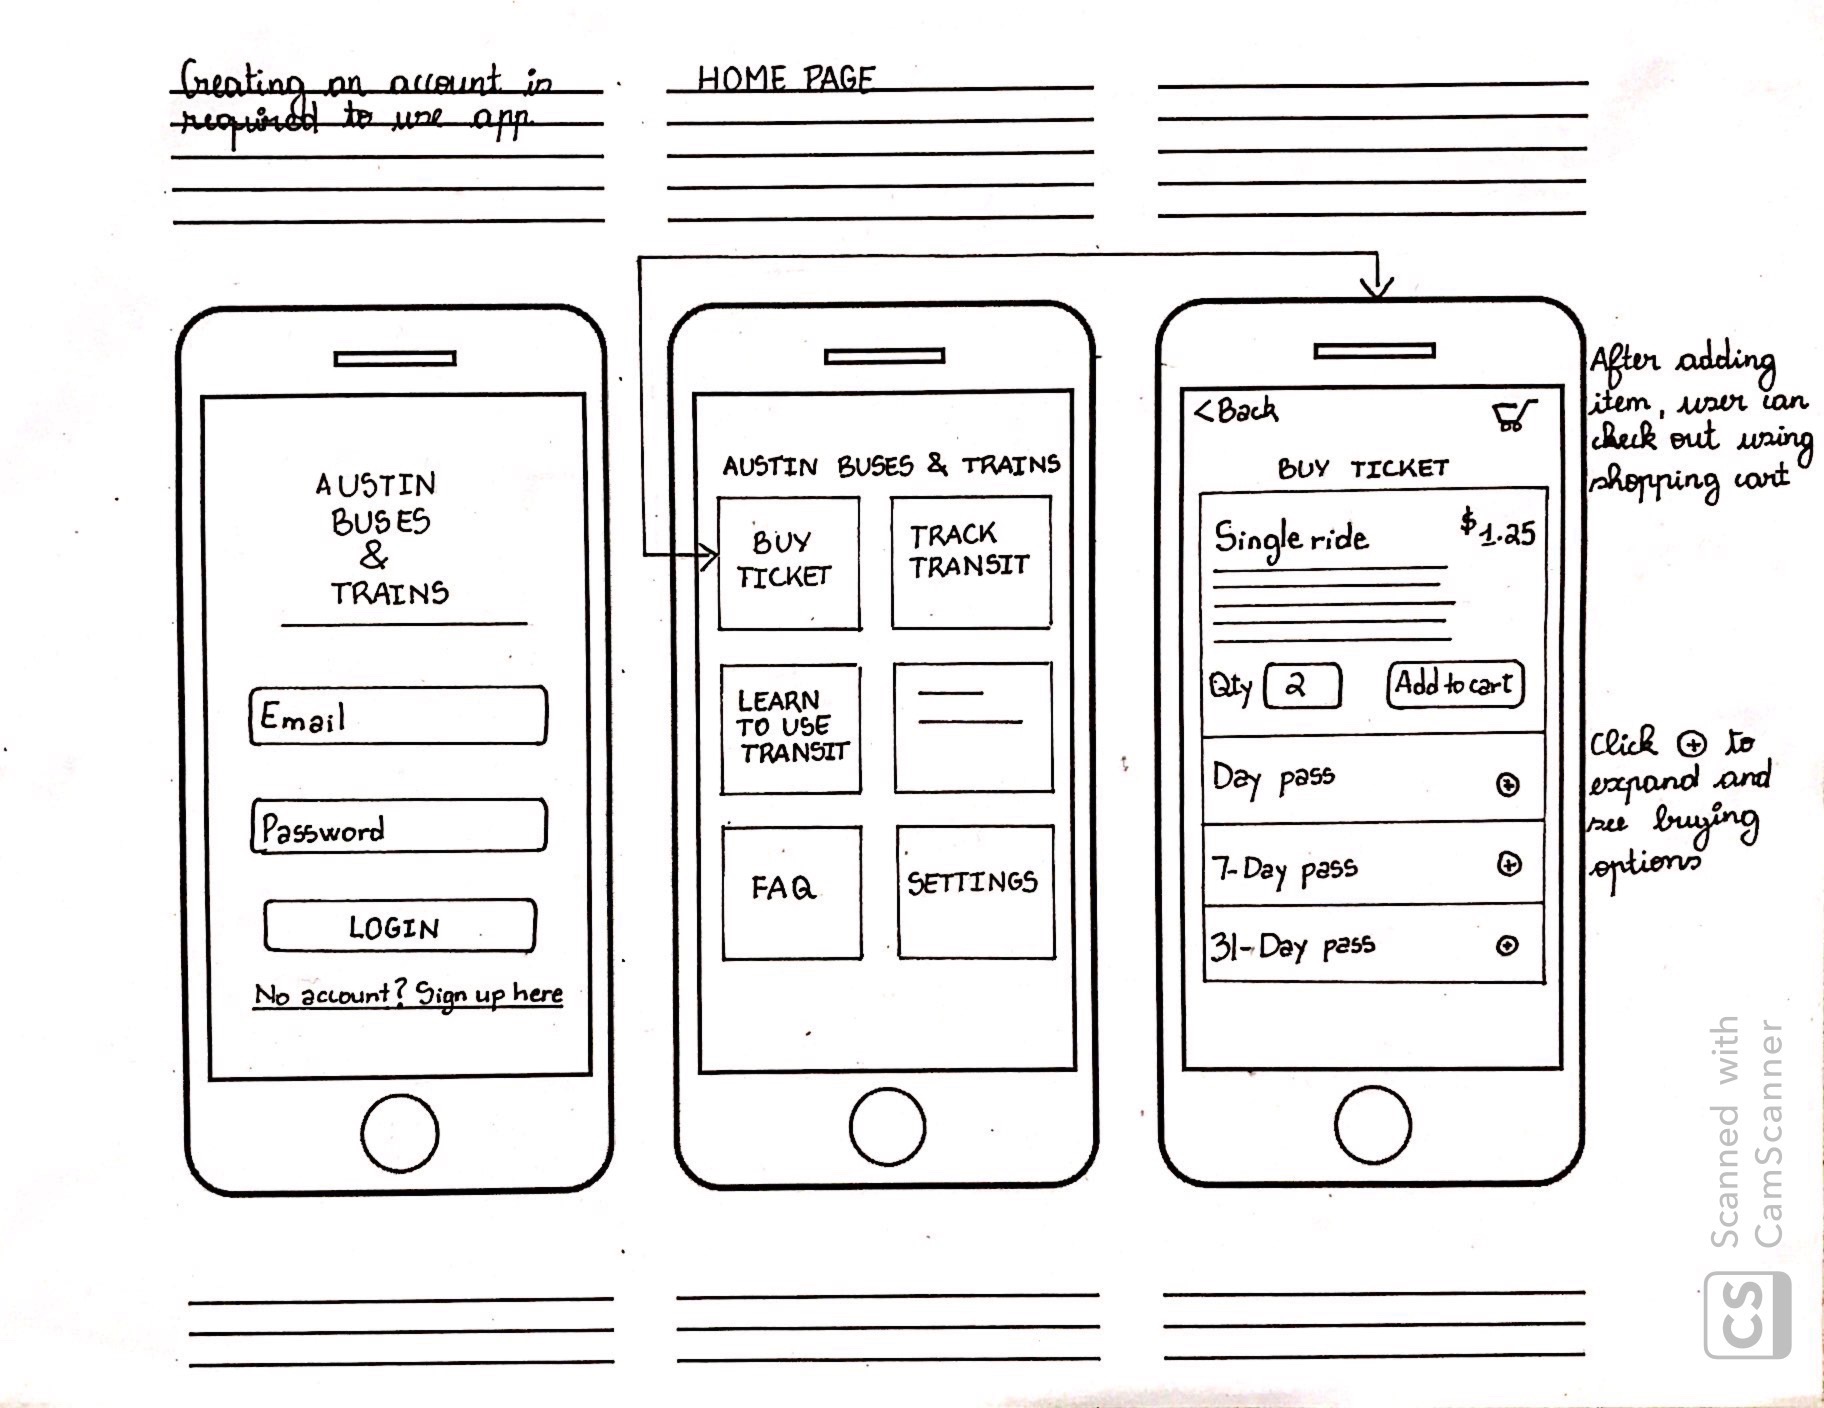 Creating an account is
required to use app.
HOME PAGE
AUSTIN
BUSES
&
TRAINS
Email
Password
LOGIN
No account? Sign up here
AUSTIN BUSES & TRAINS
BUY
TICKET
TRACK
TRANSIT
LEARN
TO USE
TRANSIT
FAQ
SETTINGS
<Back
BUY TICKET
Single ride $1.25
Qty 2 Add to cart
Day pass
7-Day pass
31-Day pass
After adding
item, user can
check out using
shopping cart
Click ⊕ to
expand and
see buying
options
Scanned with
CamScanner
CS